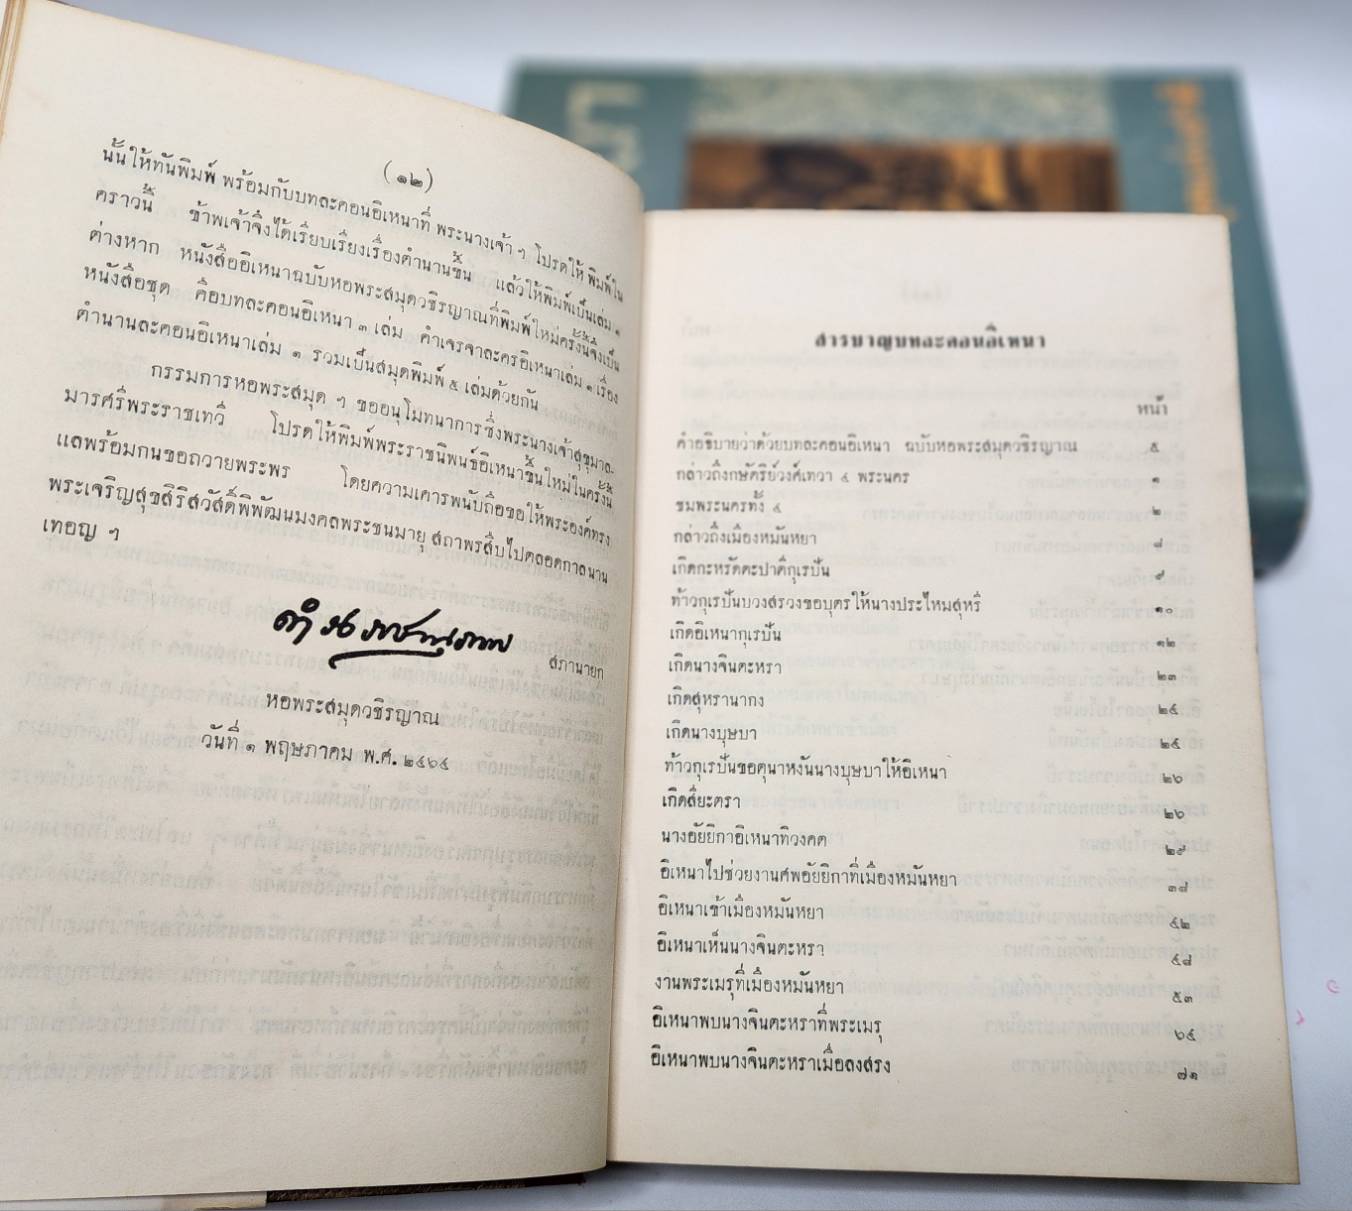 (๑๒)
นั้นให้ทันพิมพ์ พร้อมกับบทละคอนอิเหนาที่ พระนางเจ้า ฯ โปรดให้พิมพ์ใน
คราวนี้ ข้าพเจ้าจึงได้เรียบเรียงเรื่องตำนานขึ้น แล้วให้พิมพ์เป็นเล่ม ๑
ต่างหาก หนังสืออิเหนาฉบับหอพระสมุดวชิรญาณที่พิมพ์ใหม่ครั้งนี้จึงเป็น
หนังสือชุด คือบทละคอนอิเหนา ๓ เล่ม คำเจรจาละครอิเหนาเล่ม ๑ เรื่อง
ตำนานละคอนอิเหนาเล่ม ๑ รวมเป็นสมุดพิมพ์ ๕ เล่มด้วยกัน
กรรมการหอพระสมุด ฯ ขออนุโมทนาการซึ่งพระนางเจ้าสุขุมาล
มารศรีพระราชเทวี โปรดให้พิมพ์พระราชนิพนธ์อิเหนาขึ้นใหม่ในครั้งนี้
แลพร้อมกนขอถวายพระพร โดยความเคารพนับถือขอให้พระองค์ทรง
พระเจริญสุขสิริสวัสดิ์พิพัฒนมงคลพระชนมายุ สถาพรสืบไปตลอดกาลนาน
เทอญ ฯ
ดำรงราชานุภาพ
สภานายก
หอพระสมุดวชิรญาณ
วันที่ ๑ พฤษภาคม พ.ศ. ๒๔๖๔
สารบาญบทละคอนอิเหนา
หน้า
คำอธิบายว่าด้วยบทละคอนอิเหนา ฉบับหอพระสมุดวชิรญาณ ๕
กล่าวถึงกษัตริย์วงศ์เทวา ๔ พระนคร ๑
ชมพระนครทั้ง ๔ ๒
กล่าวถึงเมืองหมันหยา ๘
เกิดกะหรัดตะปาตีกุเรปัน ๙
ท้าวกุเรปันบวงสรวงขอบุตรให้นางประไหมสุหรี ๑๐
เกิดอิเหนากุเรปัน ๑๒
เกิดนางจินตะหรา ๒๓
เกิดสุหรานากง ๒๔
เกิดนางบุษบา ๒๕
ท้าวกุเรปันขอตุนาหงันนางบุษบาให้อิเหนา ๒๖
เกิดสียะตรา ๒๖
นางอัยยิกาอิเหนาทิวงคต ๒๙
อิเหนาไปช่วยงานศพอัยยิกาที่เมืองหมันหยา ๓๘
อิเหนาเข้าเมืองหมันหยา ๔๒
อิเหนาเห็นนางจินตะหรา ๔๘
งานพระเมรุที่เมืองหมันหยา ๕๓
อิเหนาพบนางจินตะหราที่พระเมรุ ๖๔
อิเหนาพบนางจินตะหราเมื่อลงสรง ๗๑